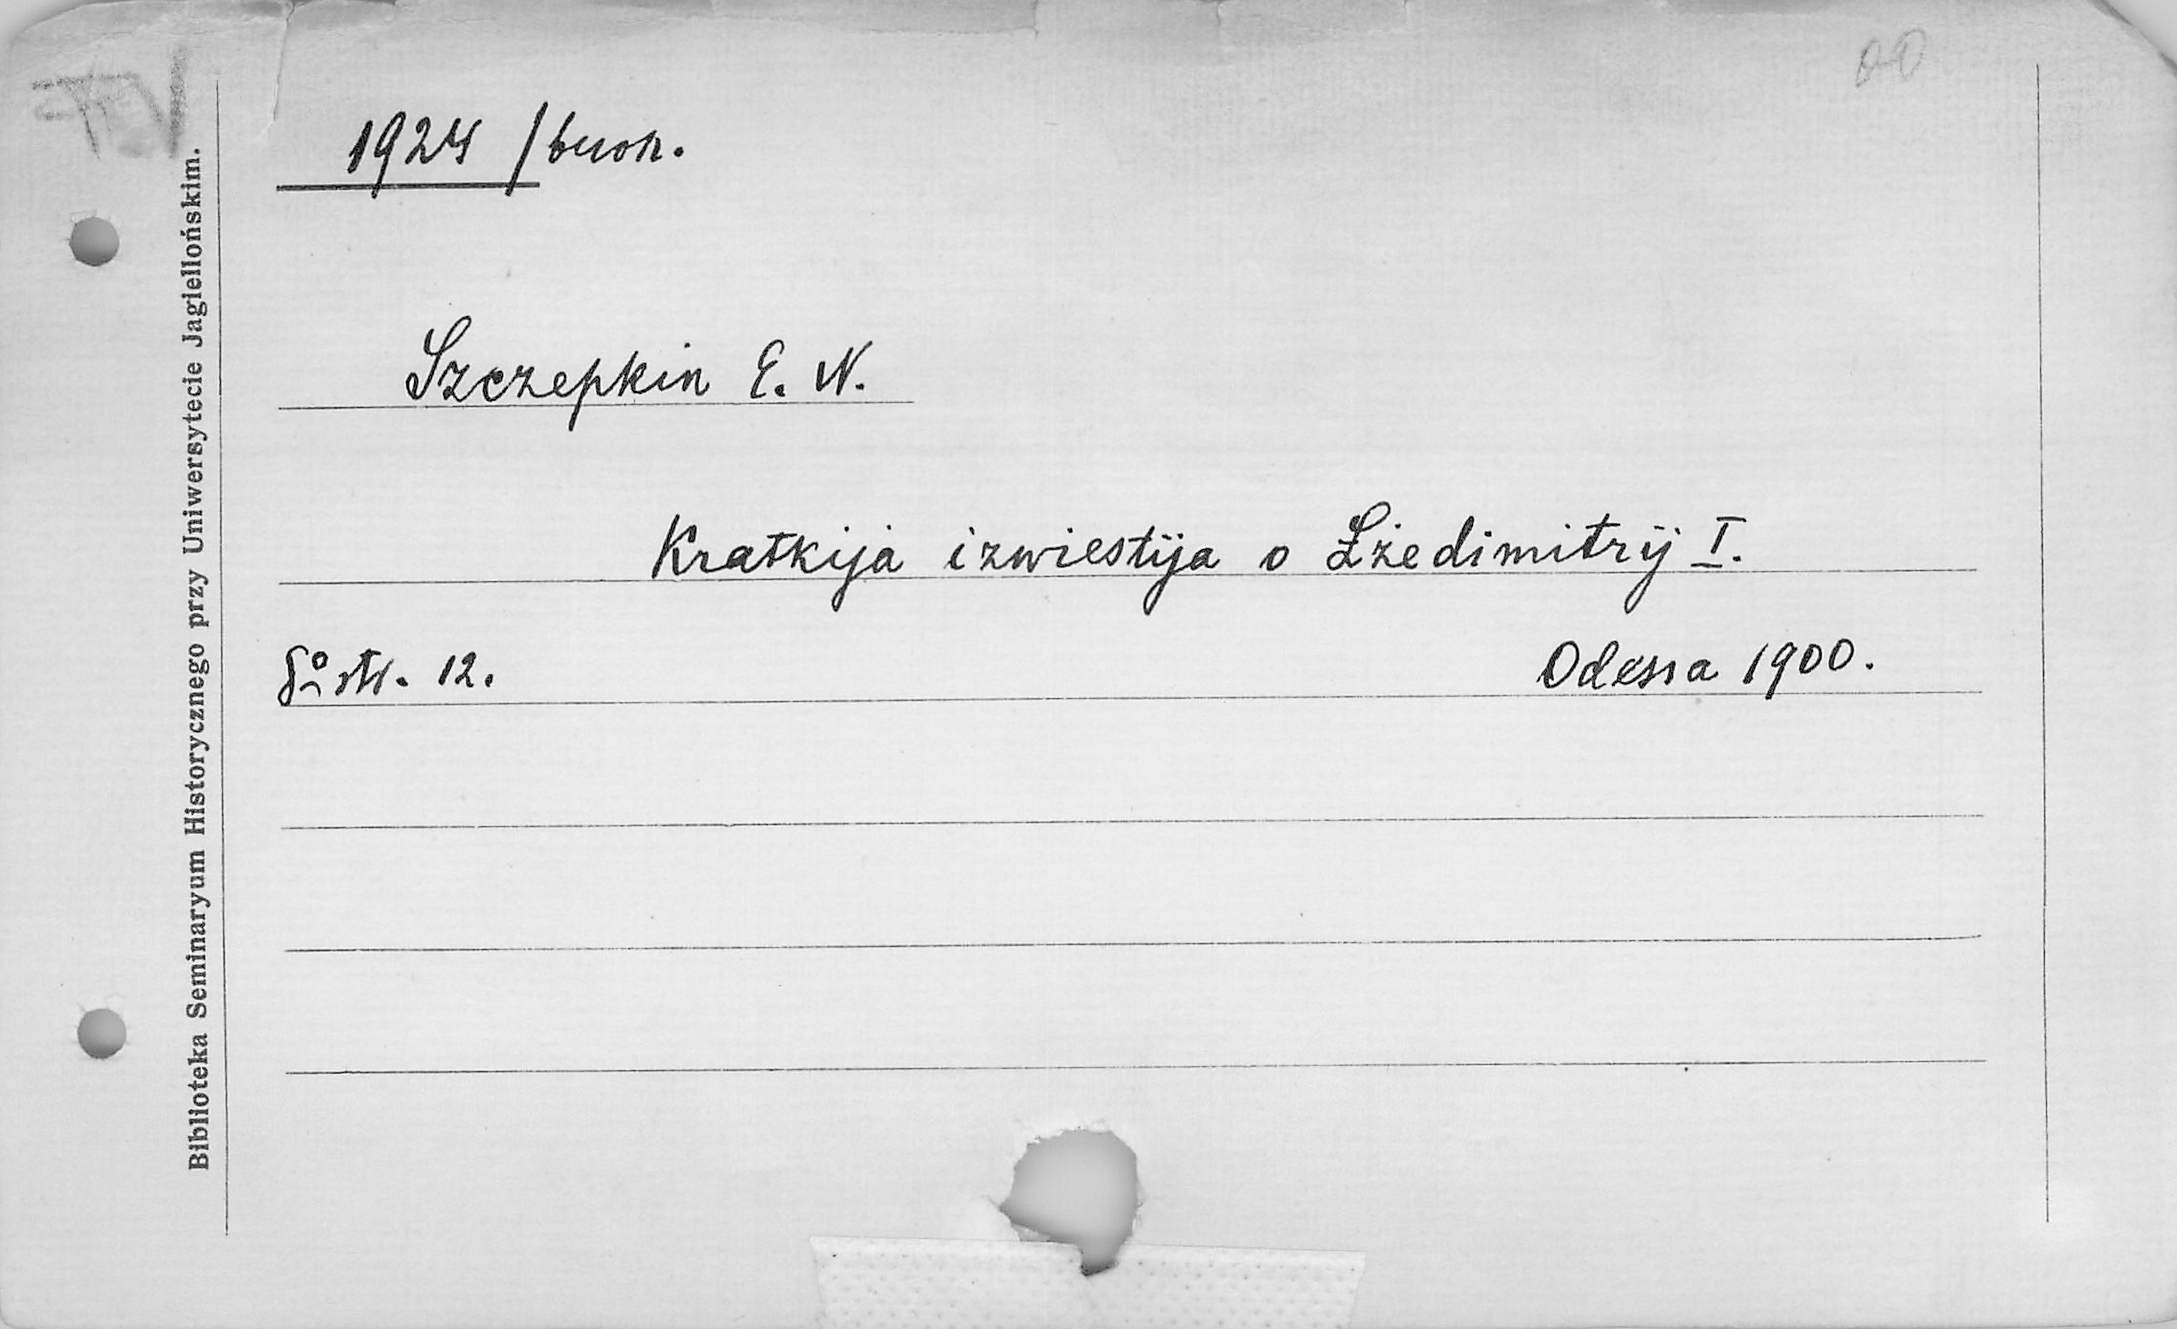 1924 / bros.
Szczepkin E. N.
Kratkija izwiestija o Lżedimitrij I.
8° str. 12.
Odessa 1900.
Biblioteka Seminaryum Historycznego przy Uniwersytecie Jagiellońskim.